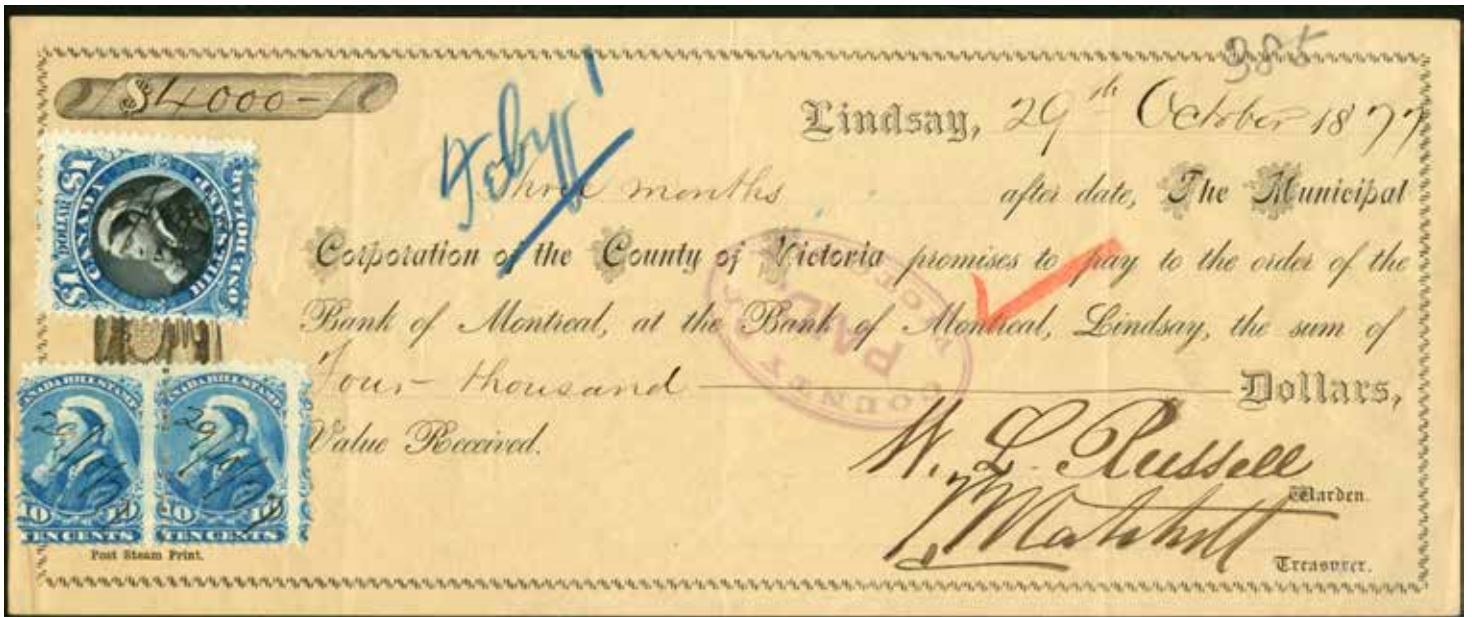 385
$4000-
Lindsay, 29th October 1877
Three months after date, The Municipal
Corporation of the County of Victoria promises to pay to the order of the
Bank of Montreal, at the Bank of Montreal, Lindsay, the sum of
Four thousand Dollars,
Value Received.
W. L. Russell
Warden.
Treasurer.
COUNTY OF
PAID
$1 DOLLAR $1
CANADA
BILL STAMP
CANADA BILL STAMP
10 10
TEN CENTS
CANADA BILL STAMP
10 10
TEN CENTS
Post Steam Print.